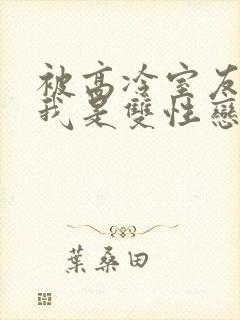 被高冷室友
我是雙性戀
葉桑田